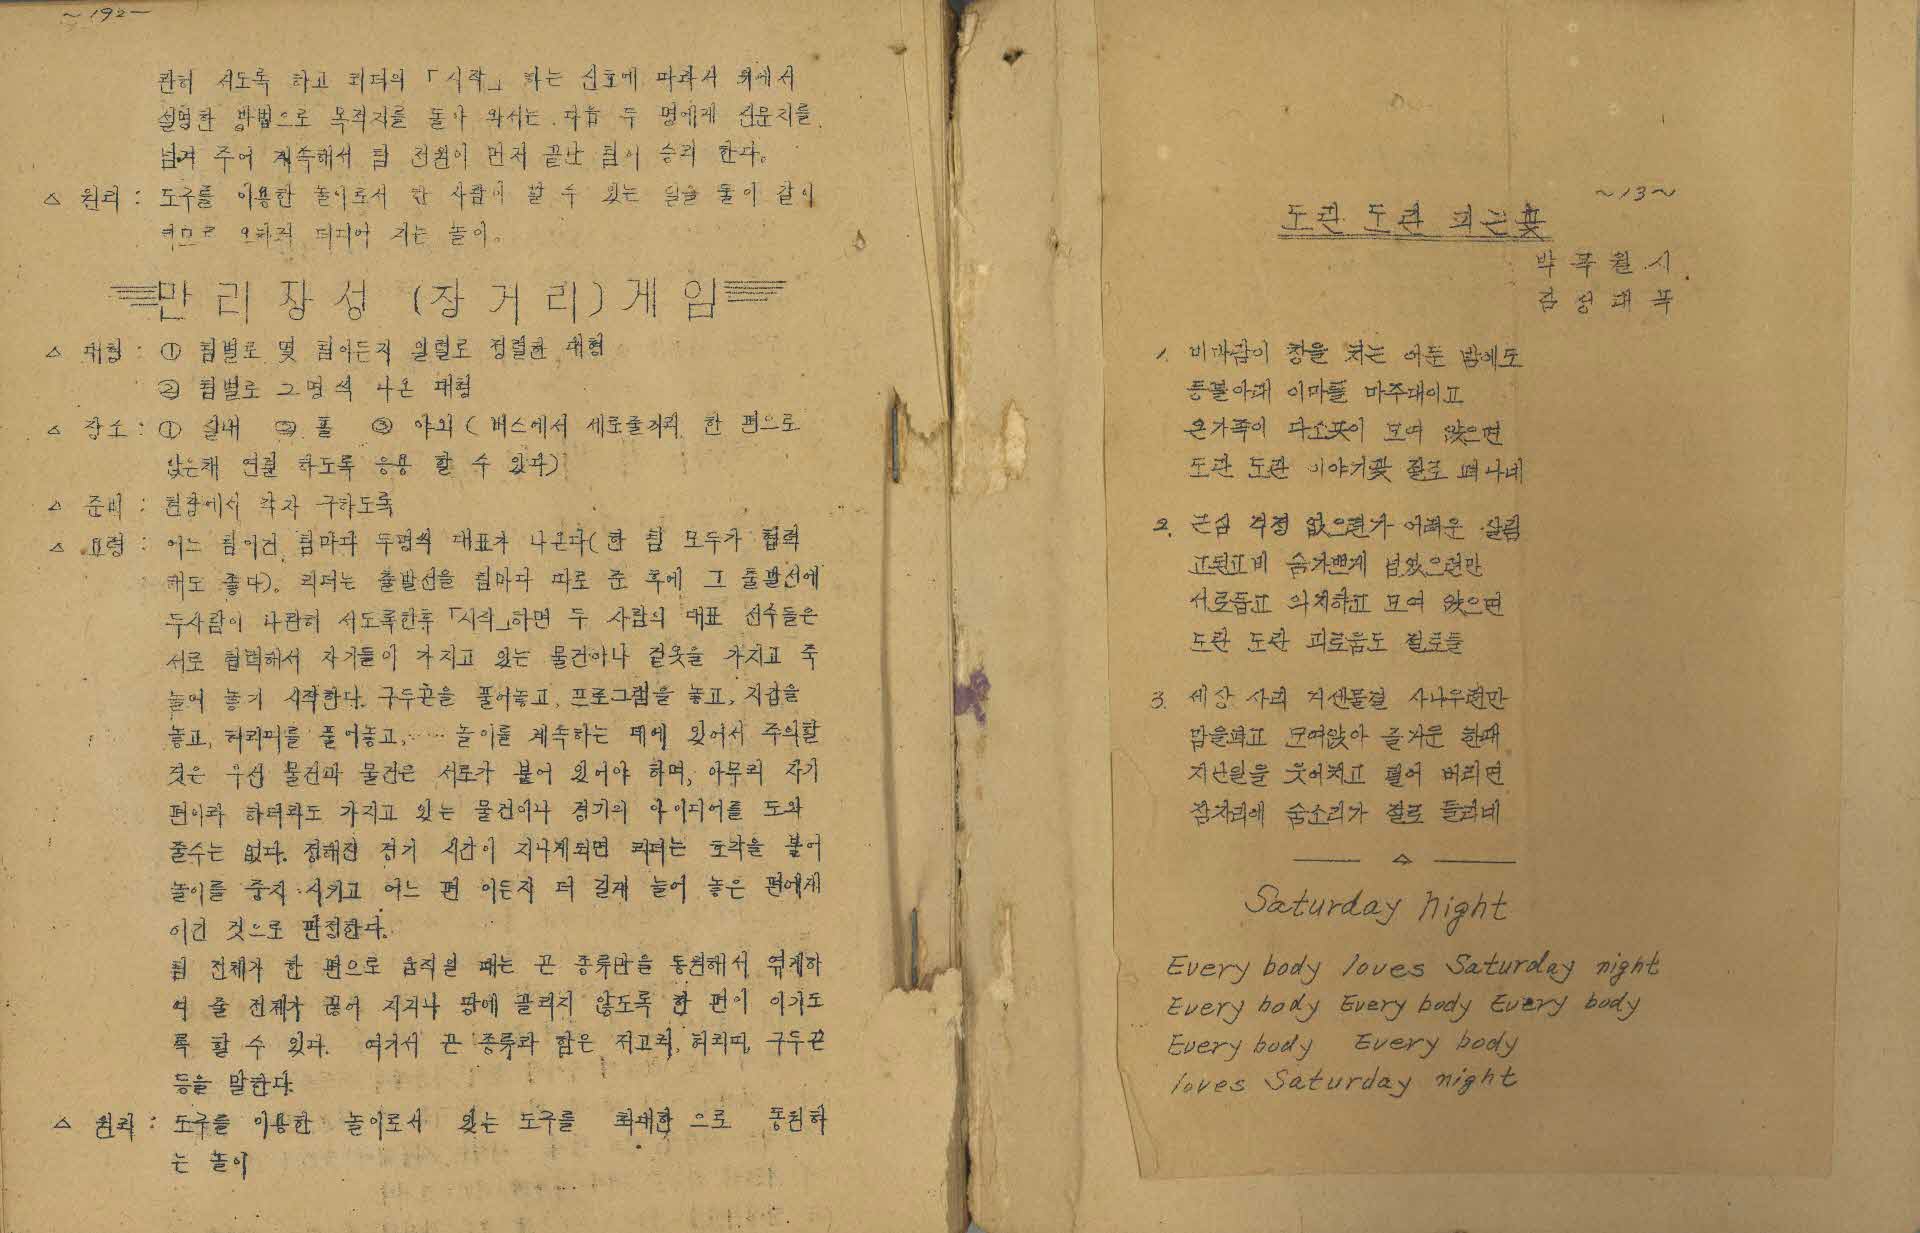 ~192~
란히 서도록 하고 리더의 「시작」 하는 신호에 따라서 위에서
설명한 방법으로 목적지를 돌아 와서는 다음 두 명에게 신문지를
넘겨 주어 계속해서 팀 전원이 먼저 끝난 팀이 승리 한다。
△ 원리 : 도구를 이용한 놀이로서 한 사람이 할 수 있는 일을 둘이 같이
하므로 오히려 더디어 지는 놀이。
만리장성 (장거리) 게임
△ 대형 : ① 팀별로 몇 팀이든지 일렬로 정렬한 대형
② 팀별로 2명씩 나온 대형
△ 장소 : ① 실내 ② 풀 ③ 야외 ( 버스에서 세로줄끼리 한 편으로
앉은채 연결 하도록 응용 할 수 있다)
△ 준비 : 현장에서 각자 구하도록
△ 요령 : 어느 팀이건 팀마다 두명씩 대표가 나온다( 한 팀 모두가 협력
해도 좋다). 리더는 출발선을 팀마다 따로 준 후에 그 출발선에
두사람이 나란히 서도록한후 「시작」하면 두 사람의 대표 선수들은
서로 협력해서 자기들이 가지고 있는 물건이나 겉옷을 가지고 죽
늘어 놓기 시작한다. 구두끈을 풀어놓고, 프로그램을 놓고, 지갑을
놓고, 허리띠를 풀어놓고, ‥‥ 놀이를 계속하는 데에 있어서 주의할
것은 우선 물건과 물건은 서로가 붙어 있어야 하며, 아무리 자기
편이라 하더라도 가지고 있는 물건이나 경기의 아이디어를 도와
줄수는 없다. 정해진 경기 시간이 지나게되면 리더는 호각을 불어
놀이를 중지 시키고 어느 편 이든지 더 길게 늘어 놓은 편에게
이긴 것으로 판정한다.
팀 전체가 한 편으로 움직일 때는 끈 종류만을 동원해서 엮게하
여 줄 전체가 끊어 지거나 땅에 끌리지 않도록 한 편이 이기도
록 할 수 있다. 여기서 끈 종류라 함은 저고리, 허리띠, 구두끈
등을 말한다.
△ 원리 : 도구를 이용한 놀이로서 있는 도구를 최대한 으로 동원하
는 놀이
~13~
도란 도란 피는 꽃
박 목 월 시
김 성 태 곡
1. 비바람이 창을 치는 어둔 밤에도
등불아래 이마를 마주대이고
온가족이 다소곳이 모여 앉으면
도란 도란 이야기꽃 절로 펴나네
2. 근심 걱정 없으련가 어려운 살림
고된고비 숨가쁘게 넘었으련만
서로돕고 의지하고 모여 앉으면
도란 도란 괴로움도 절로들
3. 세상 사리 거센물결 사나우련만
맘을펴고 모여앉아 즐거운 한때
지난일을 웃어치고 펼어 버리면
잠자리에 숨소리가 절로 들리네
Saturday night
Every body loves Saturday night
Every body Every body Every body
Every body Every body
loves Saturday night